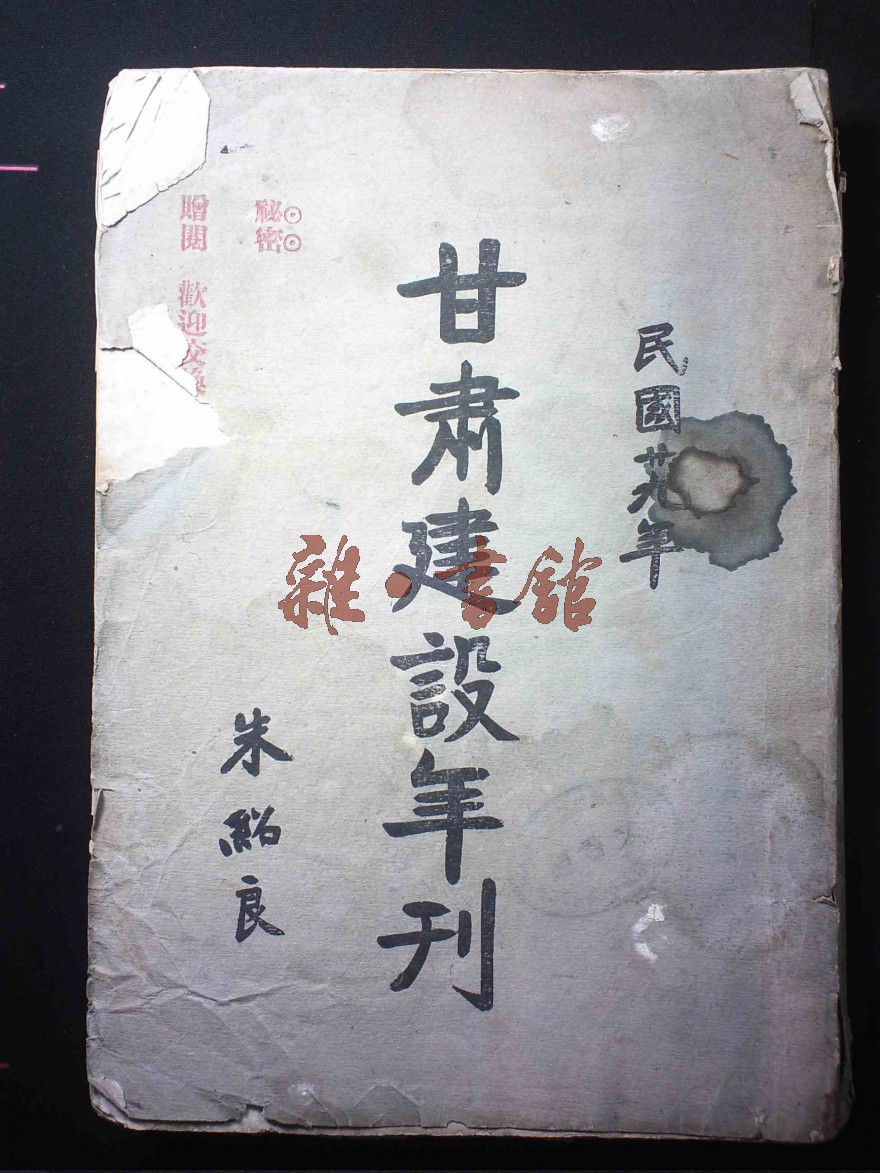 民國廿九年
甘肅建設年刊
朱紹良
秘密
贈閱 歡迎交
雜·書館